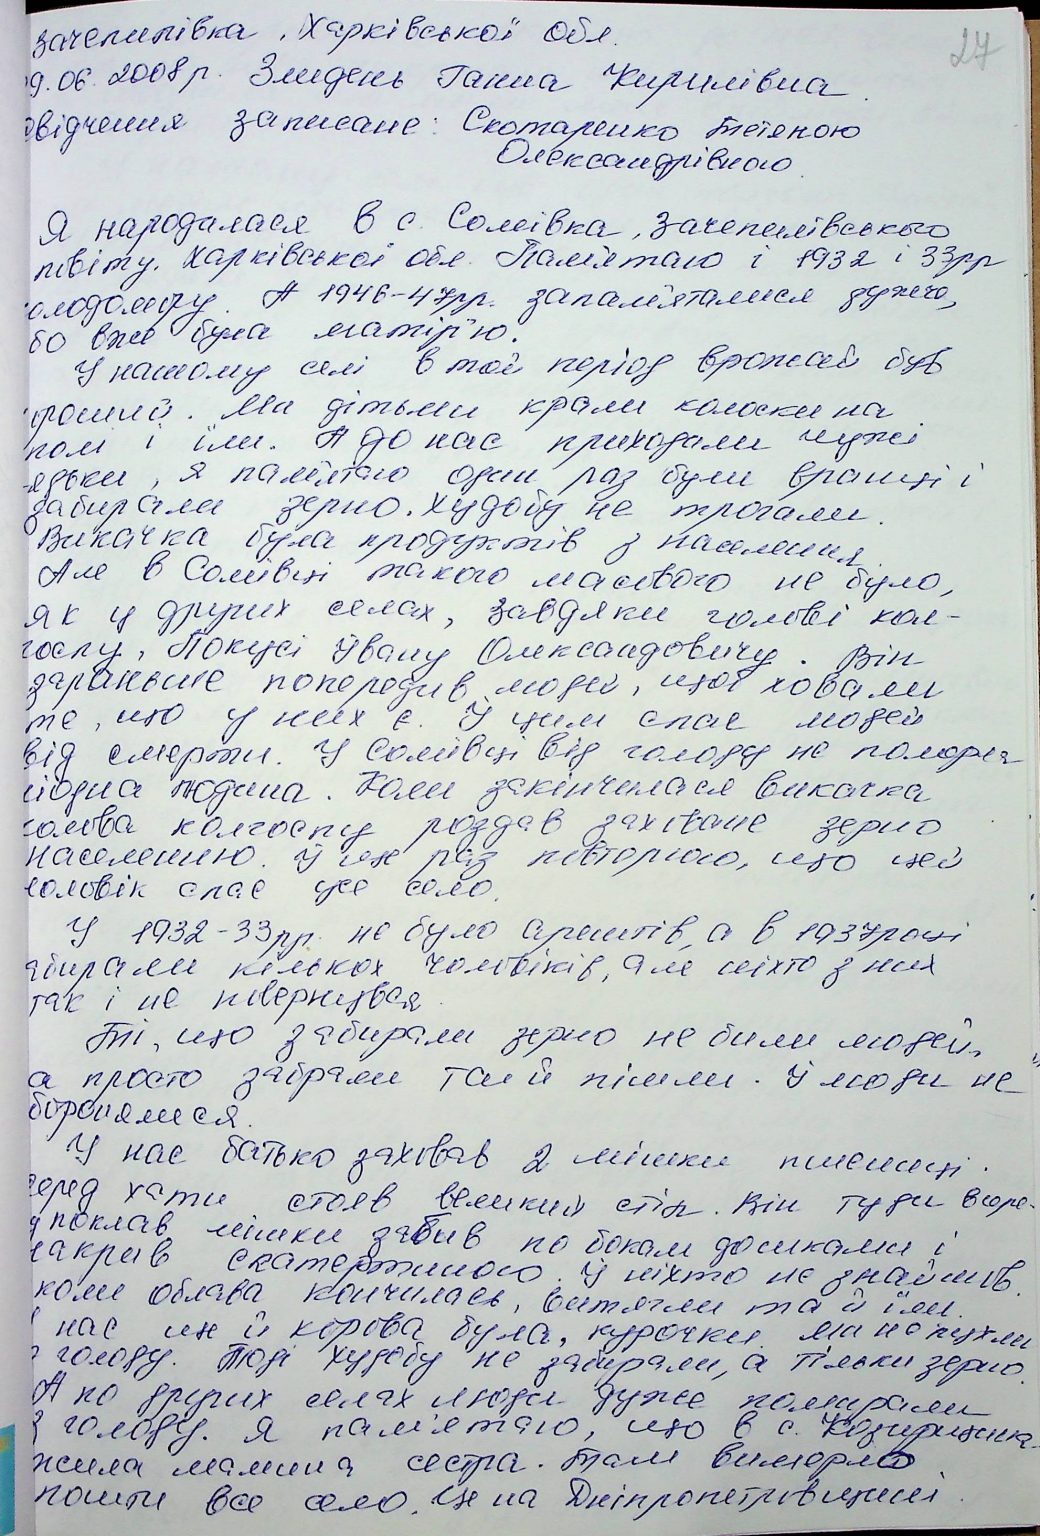 27
Зачепилівка, Харківської обл.
09.06.2008р. Злидень Ганна Кирилівна.
відчення записане: Скотаренко Тетяною
Олександрівною.
Я народилася в с. Сомівка, Зачепилівського
повіту, Харківської обл. Пам'ятаю і 1932 і 33рр
олодомору. А 1946-47рр. запам'яталися дужче,
бо вже була матір'ю.
У нашому селі в той період врожай був
хороший. Ми дітьми крали колоски на
полі і їли. А до нас приходили чужі
дядьки, я пам'ятаю один раз були вранці і
забирали зерно. Худобу не трогали.
Викачка була продуктів з населення.
Але в Сомівці такого масового не було,
як у других селах, завдяки голові кол-
госпу, Покусі Івану Олександровичу. Він
зараньше попередив людей, щоб ховали
те, що у них є. І цим спас людей
від смерти. У Сомівці від голоду не померла
ніодна людина. Коли закінчилася викачка
голова колгоспу роздав заховане зерно
населенню. І ще раз повторюю, що цей
чоловік спас усе село.
У 1932-33рр. не було арештів, а в 1937році
забирали кількох чоловіків, але ніхто з них
так і не повернувся.
Ті, що забирали зерно не били людей,
а просто забрали та й пішли. І люди не
боронялися.
У нас батько заховав 2 мішки пшениці.
серед хати стояв великий стіл. Він туди всере-
поклав мішки забив по бокам дошками і
накрив скатертиною. І ніхто не знайшов.
коли облава кончилась, витягли та й їли.
У нас ще й корова була, курочки. Ми не пухли
з голоду. Тоді худобу не забирали, а тільки зерно.
А по других селах люди дуже помирали
з голоду. Я пам'ятаю, що в с. Козирщина
жила мамина сестра. Там вимерло
пошти все село. Це на Дніпропетровщині.